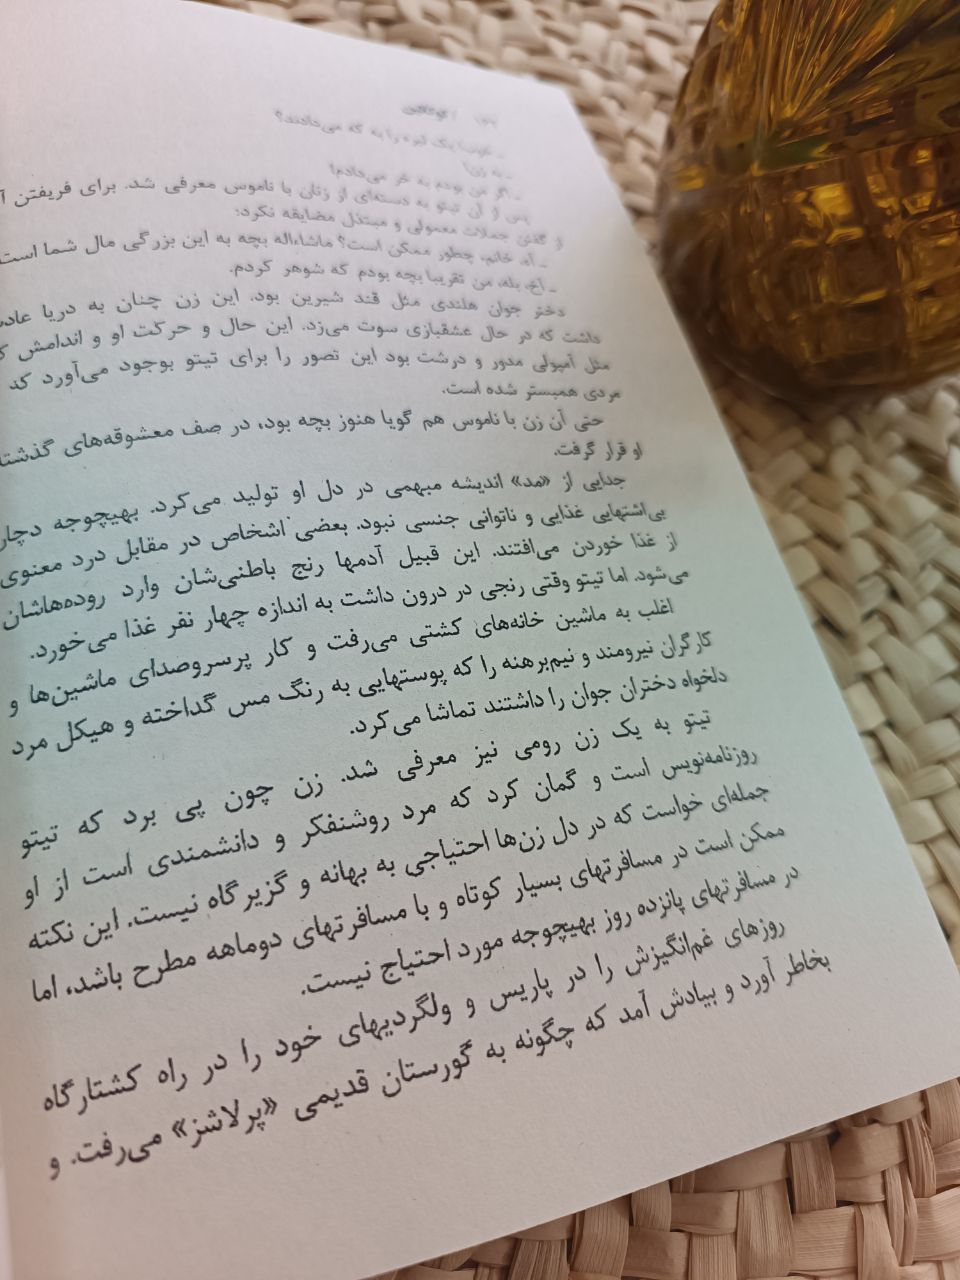 کوکائین
ـ خوب! یک نمره را به که می‌دادند؟
ـ به زن!
ـ اگر من بودم به خر می‌دادم!
پس از آن تیتو به دسته‌ای از زنان با ناموس معرفی شد. برای فریفتن
از گفتن جملات معمولی و مبتذل مضایقه نکرد:
ـ آه، خانم، چطور ممکن است؟ ماشاءاله بچه به این بزرگی مال شما است
ـ آخ، بله، من تقریبا بچه بودم که شوهر کردم.
دختر جوان هلندی مثل قند شیرین بود. این زن چنان به دریا
داشت که در حال عشقبازی سوت می‌زد. این حال و حرکت او و اندامش
مثل آمپولی مدور و درشت بود این تصور را برای تیتو بوجود می‌آورد که
مردی همبستر شده است.
حتی آن زن با ناموس هم گویا هنوز بچه بود، در صف معشوقه‌های گذشته
او قرار گرفت.
جدایی از «مد» اندیشه مبهمی در دل او تولید می‌کرد. بهیچوجه دچار
بی‌اشتهایی غذایی و ناتوانی جنسی نبود. بعضی اشخاص در مقابل درد معنوی
از غذا خوردن می‌افتند. این قبیل آدمها رنج باطنی‌شان وارد روده‌هاشان
می‌شود. اما تیتو وقتی رنجی در درون داشت به اندازه چهار نفر غذا می‌خورد.
اغلب به ماشین خانه‌های کشتی می‌رفت و کار پرسروصدای ماشین‌ها و
کارگران نیرومند و نیم‌برهنه را که پوستهایی به رنگ مس گداخته و هیکل مرد
دلخواه دختران جوان را داشتند تماشا می‌کرد.
تیتو به یک زن رومی نیز معرفی شد. زن چون پی برد که تیتو
روزنامه‌نویس است و گمان کرد که مرد روشنفکر و دانشمندی است از او
جمله‌ای خواست که در دل زن‌ها احتیاجی به بهانه و گزیر گاه نیست. این نکته
ممکن است در مسافرتهای بسیار کوتاه و با مسافرتهای دوماهه مطرح باشد، اما
در مسافرتهای پانزده روز بهیچوجه مورد احتیاج نیست.
روزهای غم‌انگیزش را در پاریس و ولگردیهای خود را در راه کشتارگاه
بخاطر آورد و بیادش آمد که چگونه به گورستان قدیمی «پرلاشز» می‌رفت. و